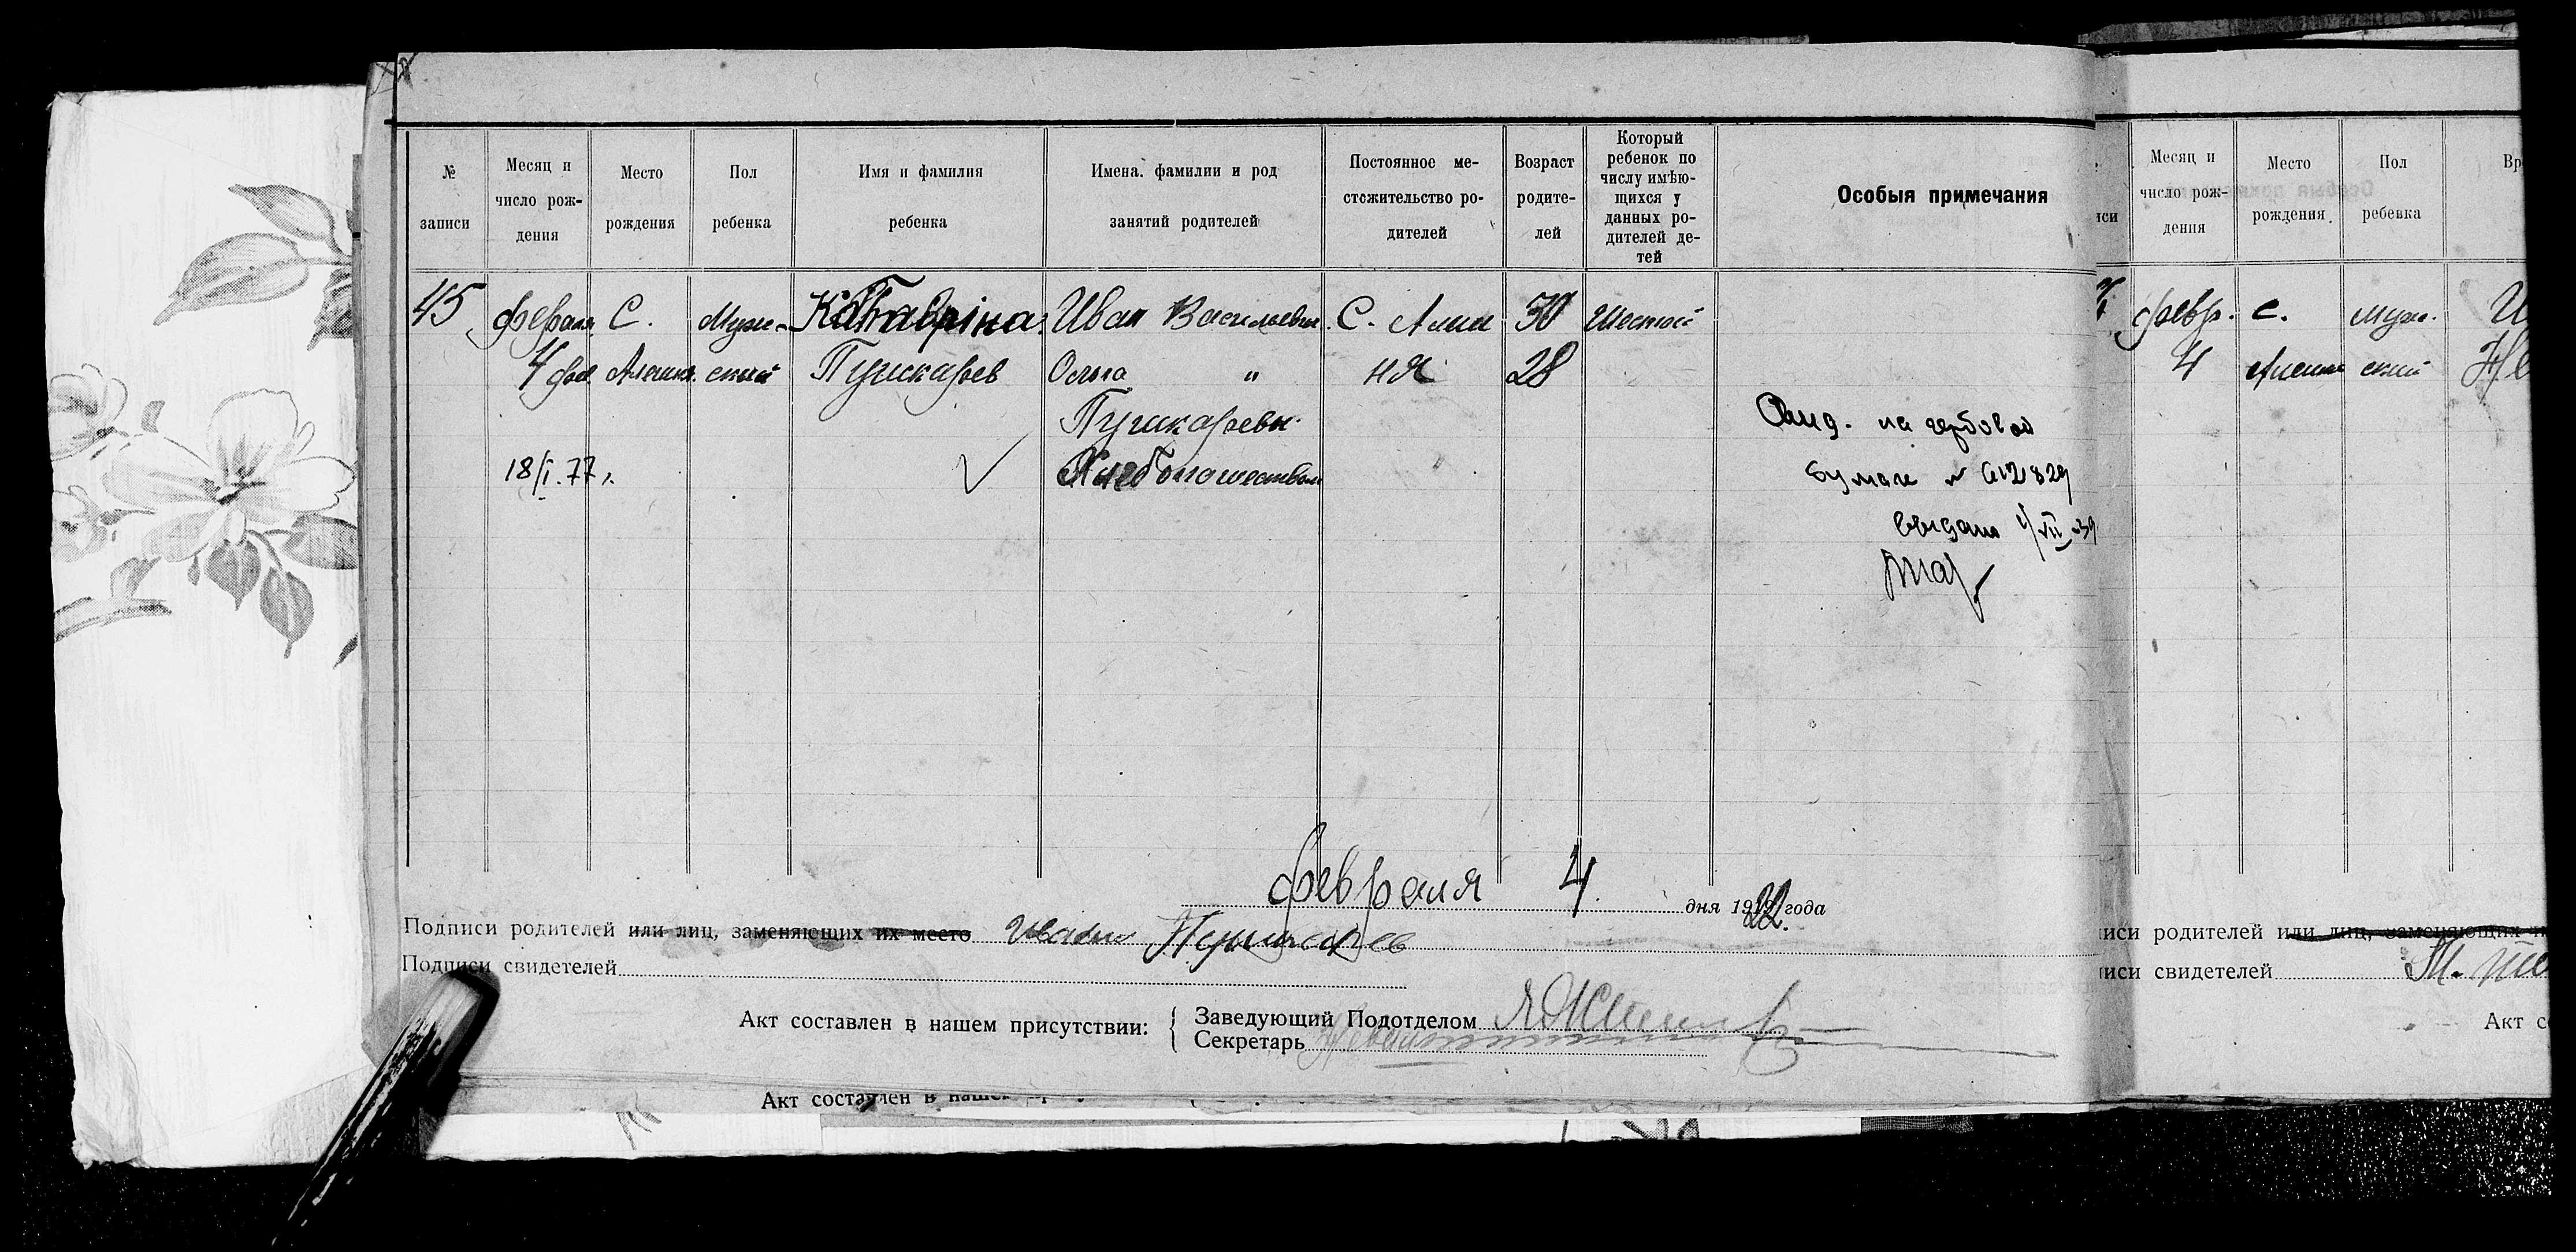 № записи
Месяц и число рождения
Место рождения
Пол ребенка
Имя и фамилия ребенка
Имена. фамилии и род занятий родителей
Постоянное местожительство родителей
Возраст родителей
Который ребенок по числу имѣющихся у данных родителей детей
Особыя примечания
45
февраля
4
С.
Мужской
Пушкарев
Иван Васильевич
Ольга "
Пушкаревы
С.
ня
30
28
Шестой
18/I.77 г.
на гербовой
бумаге № 612829
выдано
февраля 4. дня 1922 года
Подписи родителей или лиц, заменяющих их место Иван Пушкарев
Подписи свидетелей
Акт составлен в нашем присутствии:
Заведующий Подотделом
Секретарь
Акт составлен в
Месяц и число рождения
Место рождения
Пол ребенка
февр.
4
с.
мужской
иси родителей или лиц, заменяющих
иси свидетелей
Акт с